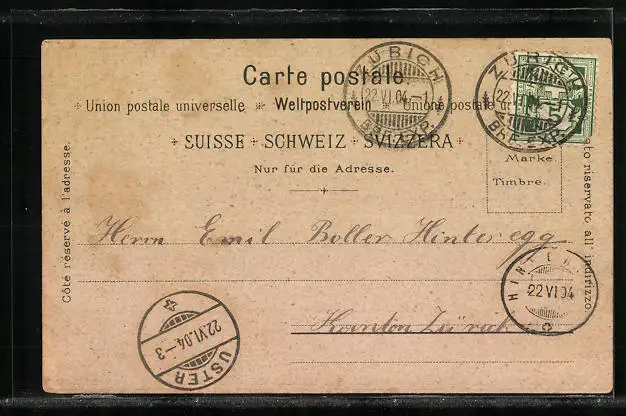 Carte postale
Union postale universelle * Weltpostverein * Unione postale
SUISSE + SCHWEIZ + SVIZZERA
Nur für die Adresse.
Marke.
Timbre.
Côté réservé à l'adresse.
riservato all' indirizzo.
ZÜRICH
22.VI.04.-1
BRF.EXP.
ZÜRICH
22
BRF.EXP.
5
Herrn Emil Boller Hinteregg
Kanton Zürich
22 VI 04
USTER
22.VI.04.-3